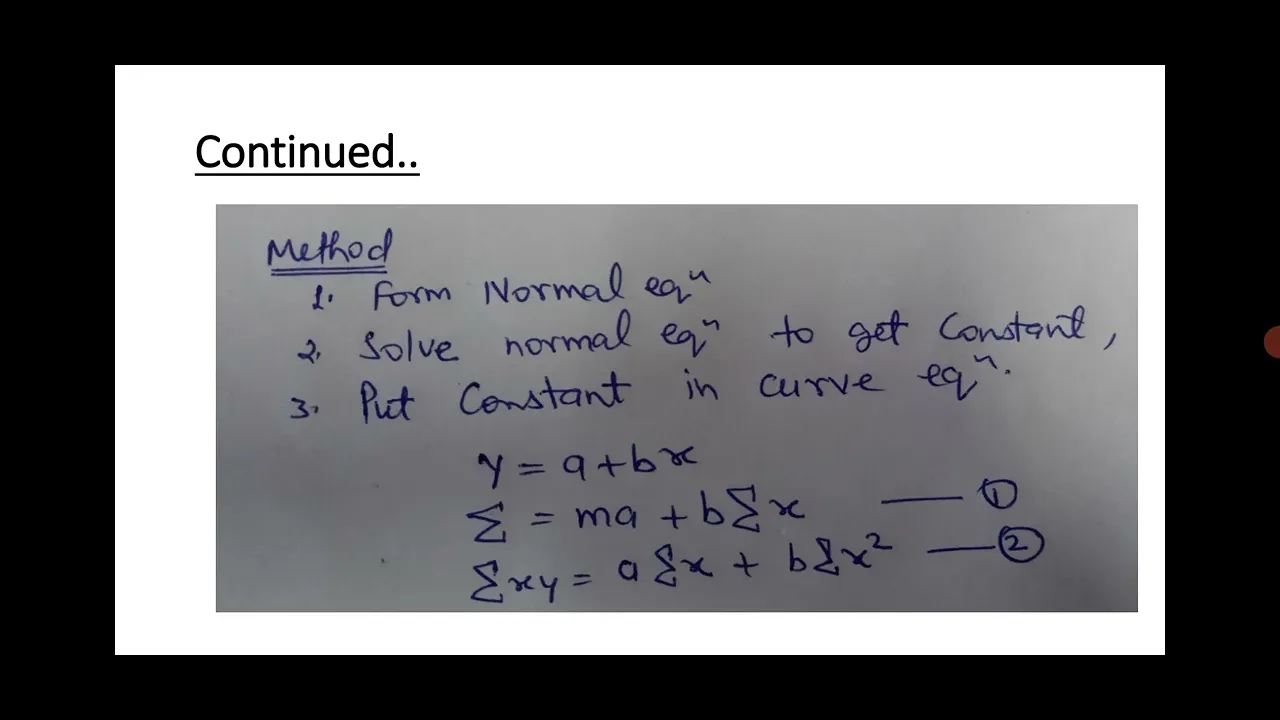 Continued..
Method
1. Form Normal eqⁿ
2. Solve normal eqⁿ to get Constant,
3. Put Constant in curve eqⁿ.
y = a + bx
Σ = ma + bΣx —— ①
Σxy = aΣx + bΣx² —— ②